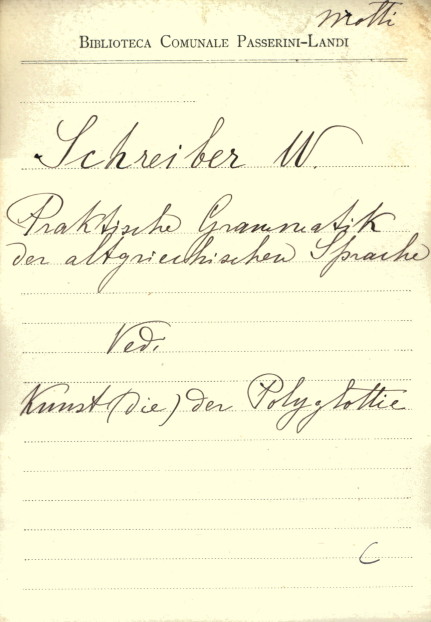 Motti
BIBLIOTECA COMUNALE PASSERINI-LANDI
Schreiber W.
Praktische Grammatik
der altgriechischen Sprache
Vedi
Kunst (die) der Polyglottie
C